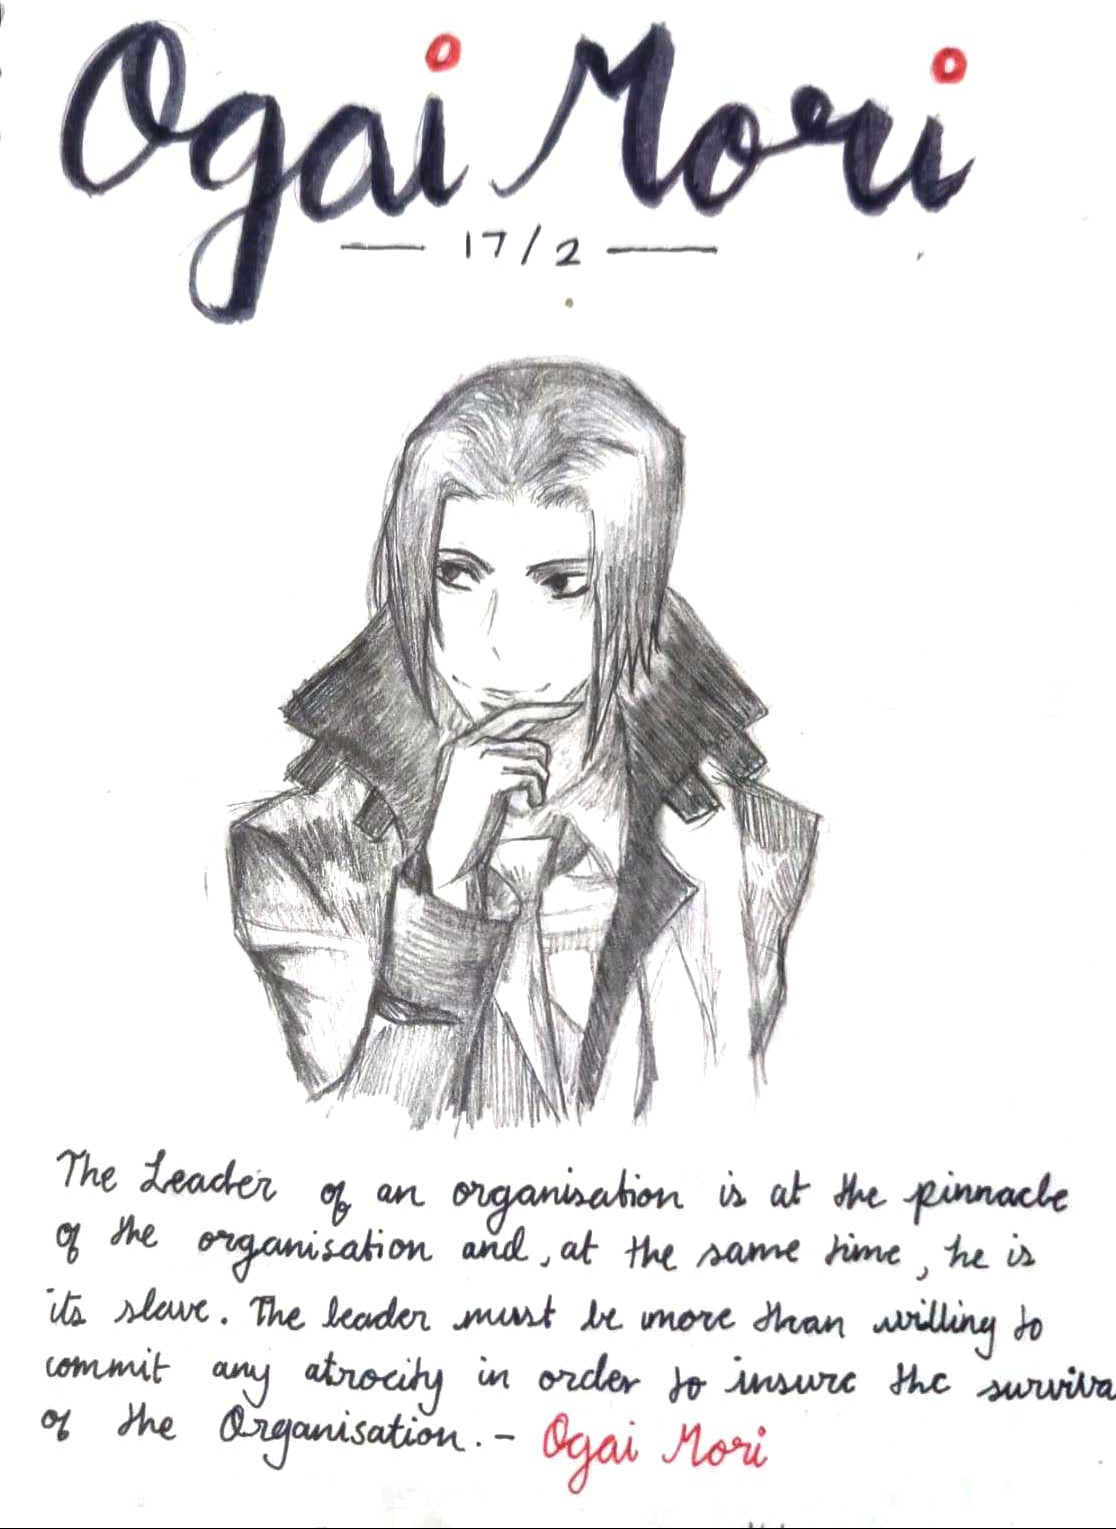 Ogai Mori
17/2
The Leader of an organisation is at the pinnacle
of the organisation and, at the same time, he is
its slave. The leader must be more than willing to
commit any atrocity in order to insure the surviva
of the Organisation. - Ogai Mori